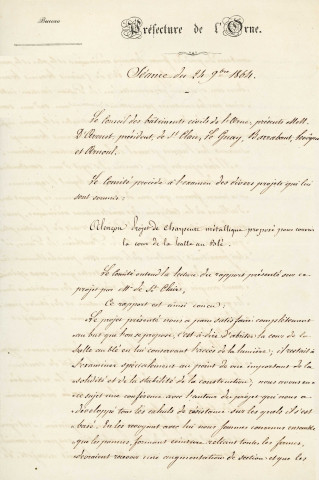 Bureau
Préfecture de l'Orne.
Séance du 24 9bre 1864.
Le Conseil des bâtiments civils de l'Orne, présents MM.
D'Arouet, président, de St Clair, Le Guay, Barrabant,
et Arnoul.
Le Comité procède à l'examen des divers projets qui lui
sont soumis:
Alençon, Projet de charpente métallique proposé pour couvrir
la cour de la halle au blé.
Le Comité entend la lecture du rapport présenté sur ce
projet par Mr de St Clair,
Ce rapport est ainsi conçu:
Le projet présenté nous a paru satisfaire complètement
au but que l'on se propose, c'est à dire d'abriter la cour de la
halle au blé en lui conservant l'accès de la lumière; il restait à
l'examiner spécialement au point de vue important de la
solidité et de la stabilité de la construction; nous avons eu à
ce sujet une conférence avec l'auteur du projet qui nous a
développé tous les calculs de résistance sur lesquels il s'est
basé. En les revoyant avec lui nous sommes convenus ensemble
que les pannes, formant ceinture reliant toutes les fermes,
devraient recevoir une augmentation de section et que les